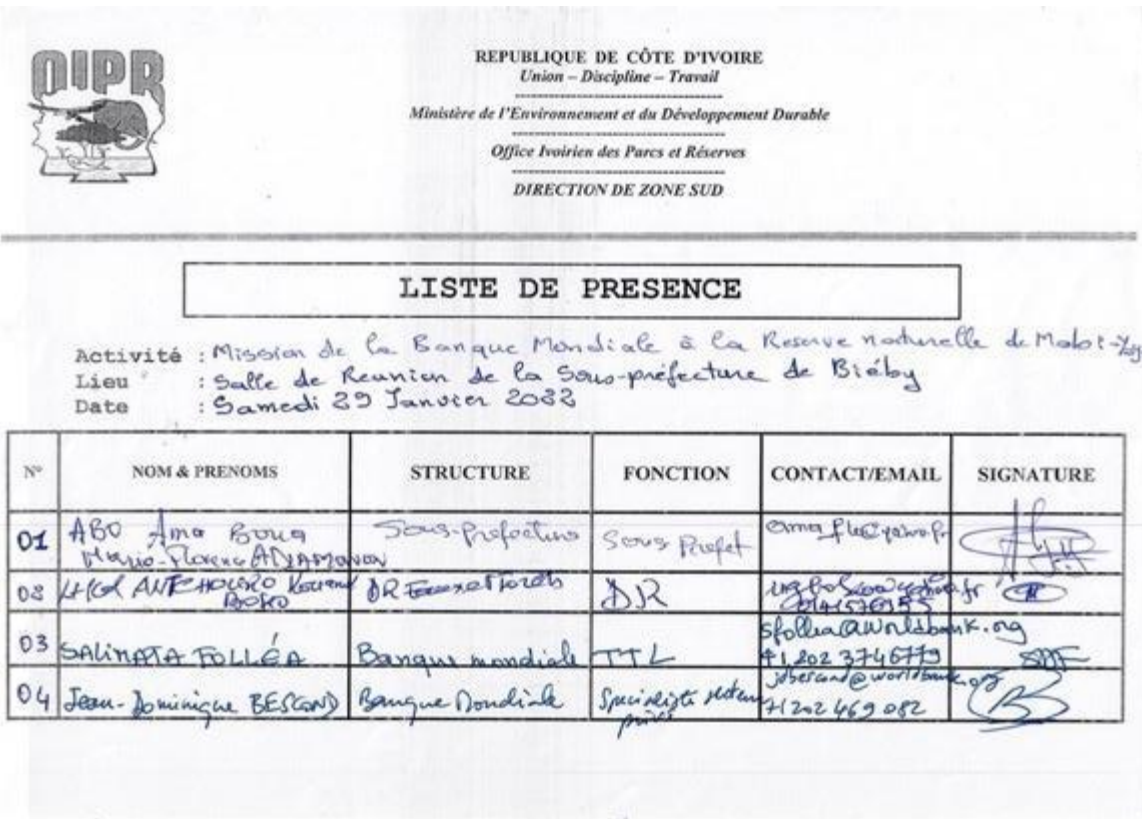 OIPR
REPUBLIQUE DE CÔTE D'IVOIRE
Union – Discipline – Travail
Ministère de l'Environnement et du Développement Durable
Office Ivoirien des Parcs et Réserves
DIRECTION DE ZONE SUD
LISTE DE PRESENCE
Activité : Mission de la Banque Mondiale à la Reserve naturelle de
Lieu : Salle de Reunion de la Sous-préfecture de Biéby
Date : Samedi 29 Janvier 2022
N° NOM & PRENOMS STRUCTURE FONCTION CONTACT/EMAIL SIGNATURE
01 ABO Ama Sous-prefecture Sous Prefet
02 DR
03 SALIMATA FOLLÉA Banque mondiale TTL sfollea@worldbank.org
+1 202 3746779
04 Jean-Dominique BESCOND Banque Mondiale Specialiste jdbescond@worldbank.org
+1 202 469 082